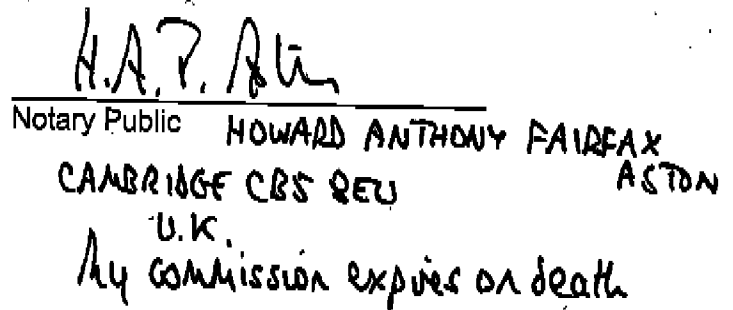 H.A.F. Aston
Notary Public HOWARD ANTHONY FAIRFAX
ASTON
CAMBRIDGE CB5 8EU
U.K.
My commission expires on death